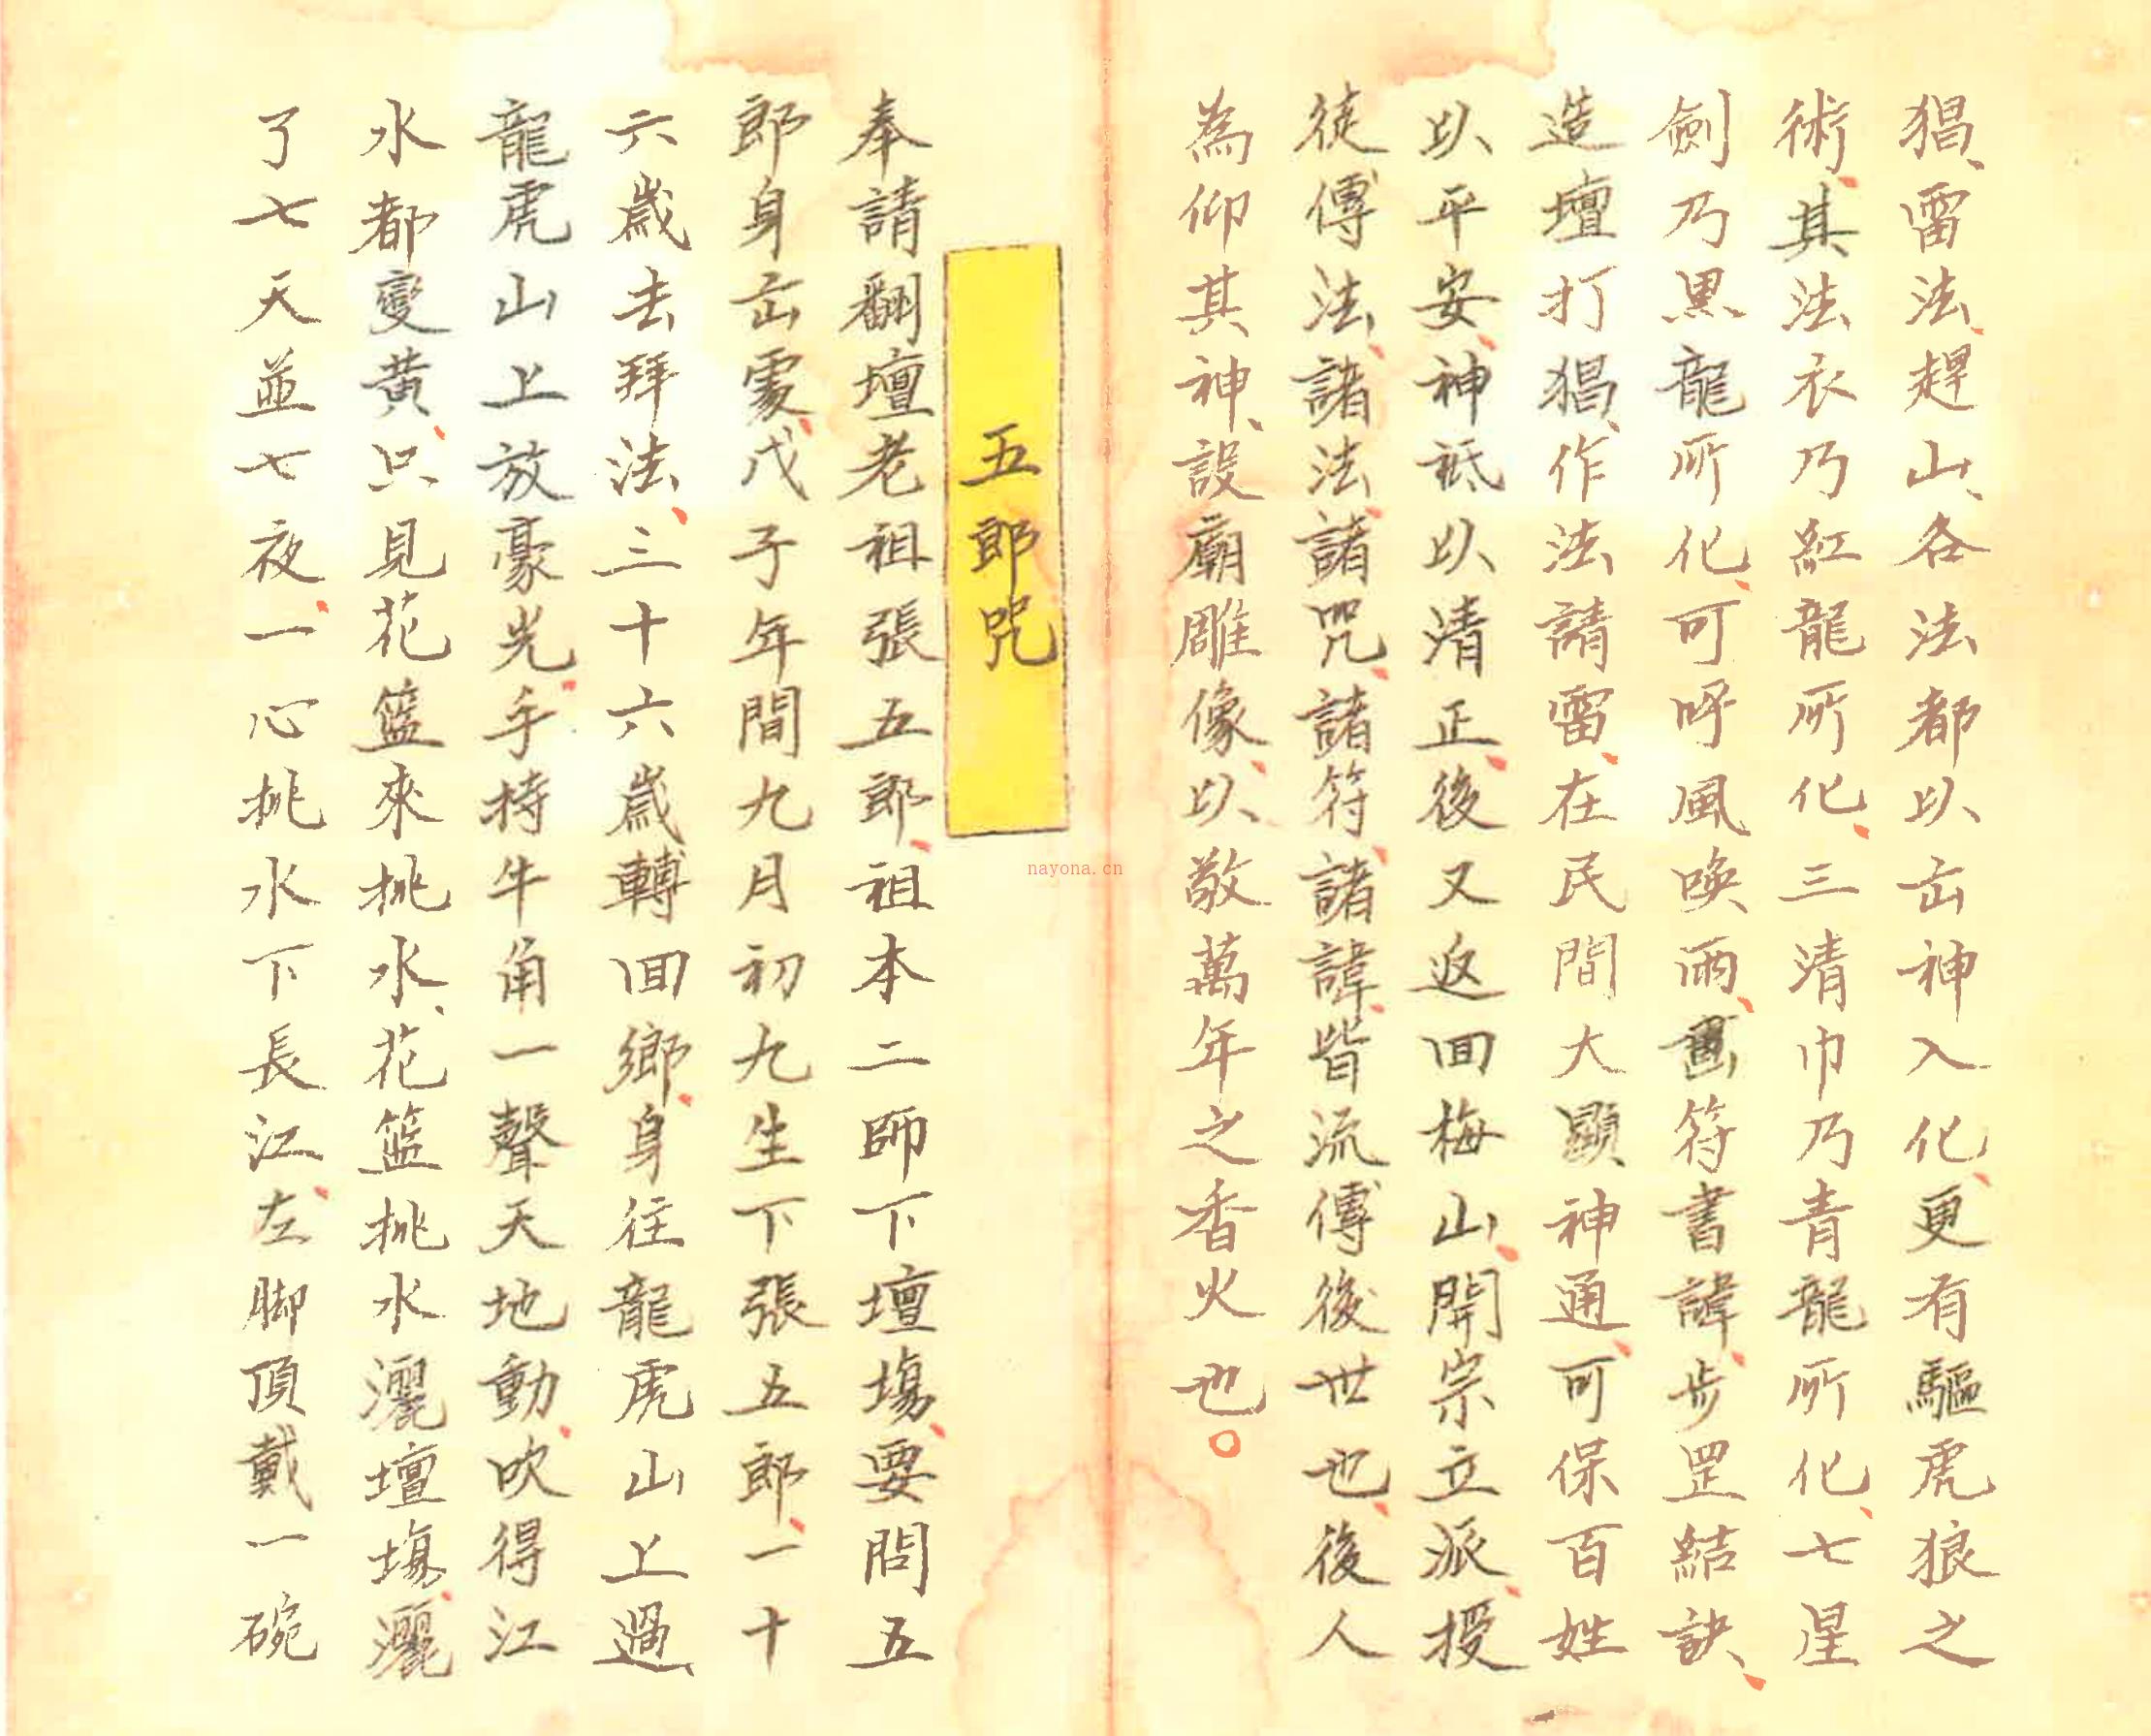 猖、雷法、趕山、各法都以出神入化、更有驅虎狼之
術、其法衣乃紅龍所化、三清巾乃青龍所化、七星
劍乃黑龍所化、可呼風喚雨、畫符書諱、步罡結訣、
造壇打猖、作法請雷、在民間大顯神通、可保百姓
以平安、神祗以清正、後又返回梅山、開宗立派、授
徒傳法、諸法、諸咒、諸符、諸諱、皆流傳後世也、後人
為仰其神、設廟雕像、以敬萬年之香火也。
五郎咒
奉請翻壇老祖張五郎、祖本二師下壇場、要問五
郎身出處、戊子年間九月初九生下張五郎、一十
六歲去拜法、三十六歲轉回鄉、身往龍虎山上過
龍虎山上放豪光、手持牛角一聲天地動、吹得江
水都變黃、只見花籃來挑水、花籃挑水灑壇場、灑
了七天並七夜、一心挑水下長江、左脚頂戴一碗
nayona.cn